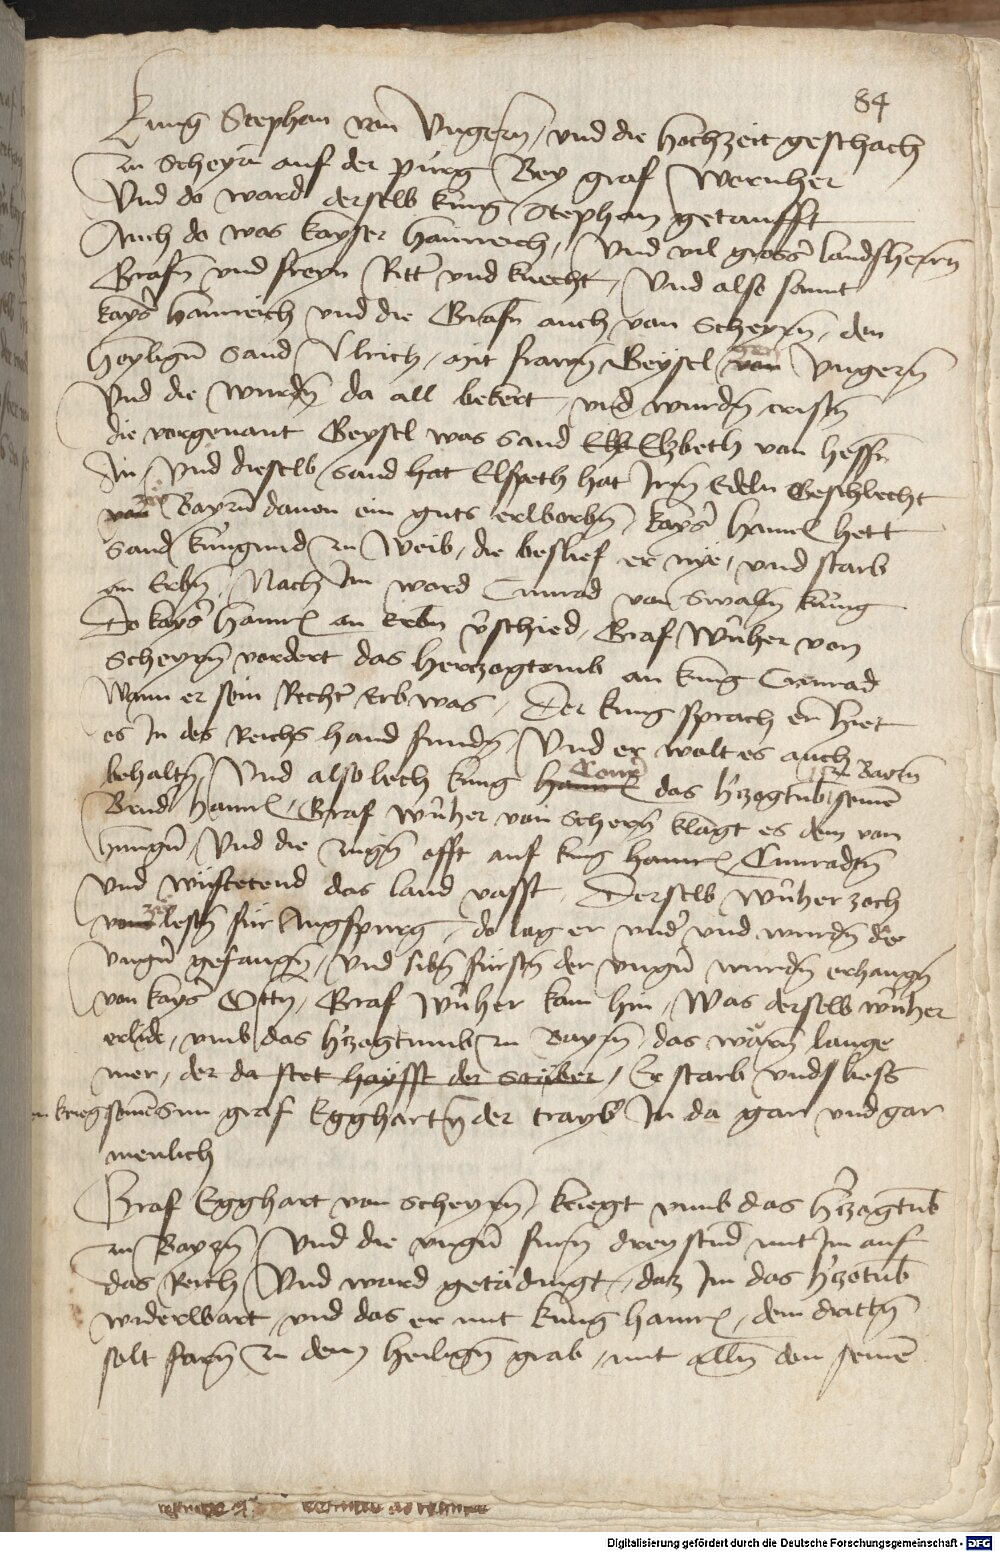 84
Kung Stephan von Ungern / und die hochzeit geschach
zu Scheyrn auf der purg Bey graf Wernher
Und do ward derselb kung Stephan getaufft
Auch do was kayser hainreich / Und vil grosser landsherrn
Grafn und freyn Ritter und knecht / Und also sannt
kayser hainreich und die Grafn auch von Scheyrn, den
heyligen Sand Ulrich / mit frawn Geysel gen Ungern
Und die wurdn da all bekert / und wurdn cristn
die vorgenant Geysel was Sand Elzbeth von hessn
An / Und dieselb Sand hat Elspeth hat Irm Edeln Geschlecht
von Bayrn davon ein guts erworbn / kayser hainr hett
Sand kungund zu Weib, die beslief er nye, und starb
on Erbn / Nach Im ward Cunrad von Swabn kung
Do kayser hainr an Erbn verschied, Graf Wernher von
Scheyrn vordert das herczogtomb an kung Conrad
Wann er sein Rechter Erb was / Der kung sprach er hiet
es In des Reichs hand fundn / Und er wolt es auch
behaltn / Und also lech kung Conr das herzogtumb zu Bayrn seinem
Brud hainr / Graf wernher von Scheyrn klagt es dem von
hungern / Und die zugn offt auf kung Cunradn
und wüstetend das land vasst / Derselb wernher zoch
zum lestn für Augspurg / do lag er under und wurdn die
ungern gefangn / und sibn fürstn der ungern wurdn erhangn
von kayser Ottn / Graf wernher kam hin / Was derselb wernher
erlide, umb das herzogtumb zu Bayrn / das wärn lange
mer, der da stet haysst der Schiber / Er starb und liess
den krieg seinem Sun graf Egghartn der trayb In da gar und gar
menlich
Graf Egghart von Scheyrn kriegt umb das herzogtumb
zu Bayrn / Und die ungern furn dreystund mit Im auf
das Reich / Und ward getädingt, daz Im das herzotumb
widerwart, und das er mit kung hainr, dem drittn
solt farn zu dem heiligen grab, mit alln den seinen
Digitalisierung gefördert durch die Deutsche Forschungsgemeinschaft - DFG